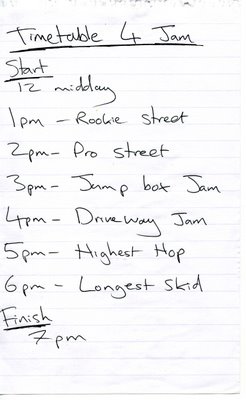 Timetable 4 Jam
Start
12 midday
1pm - Rookie street
2pm - Pro street
3pm - Jump box Jam
4pm - Driveway Jam
5pm - Highest Hop
6pm - Longest skid
Finish
7pm